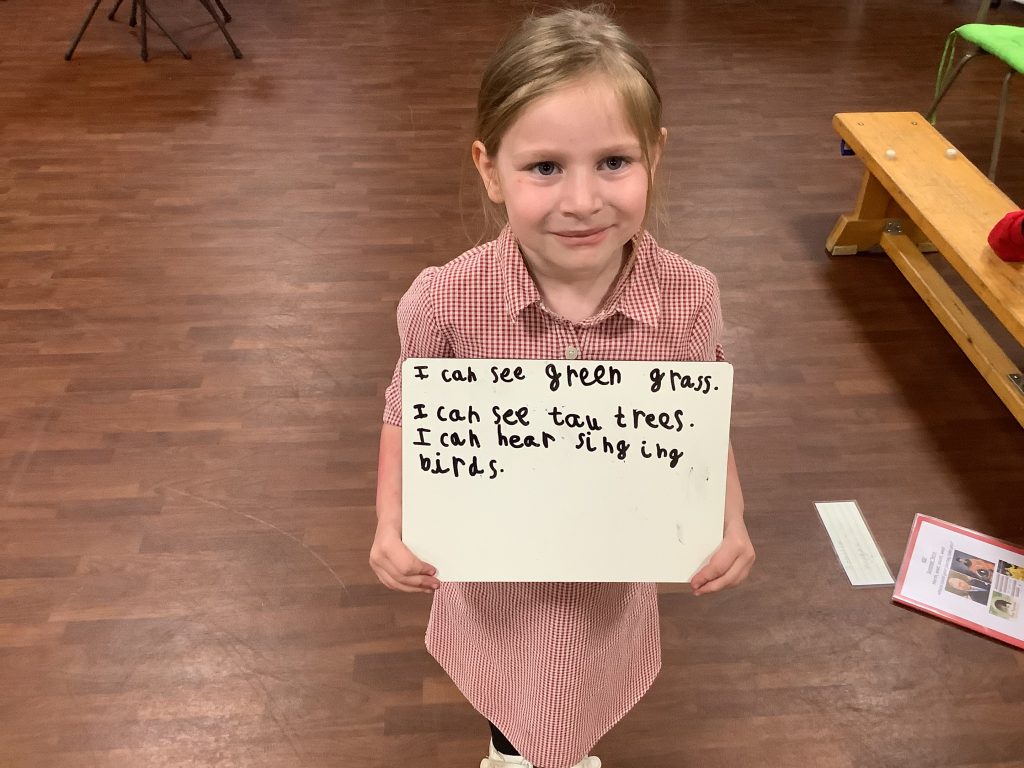 I can see green grass.
I can see tau trees.
I can hear singing
birds.